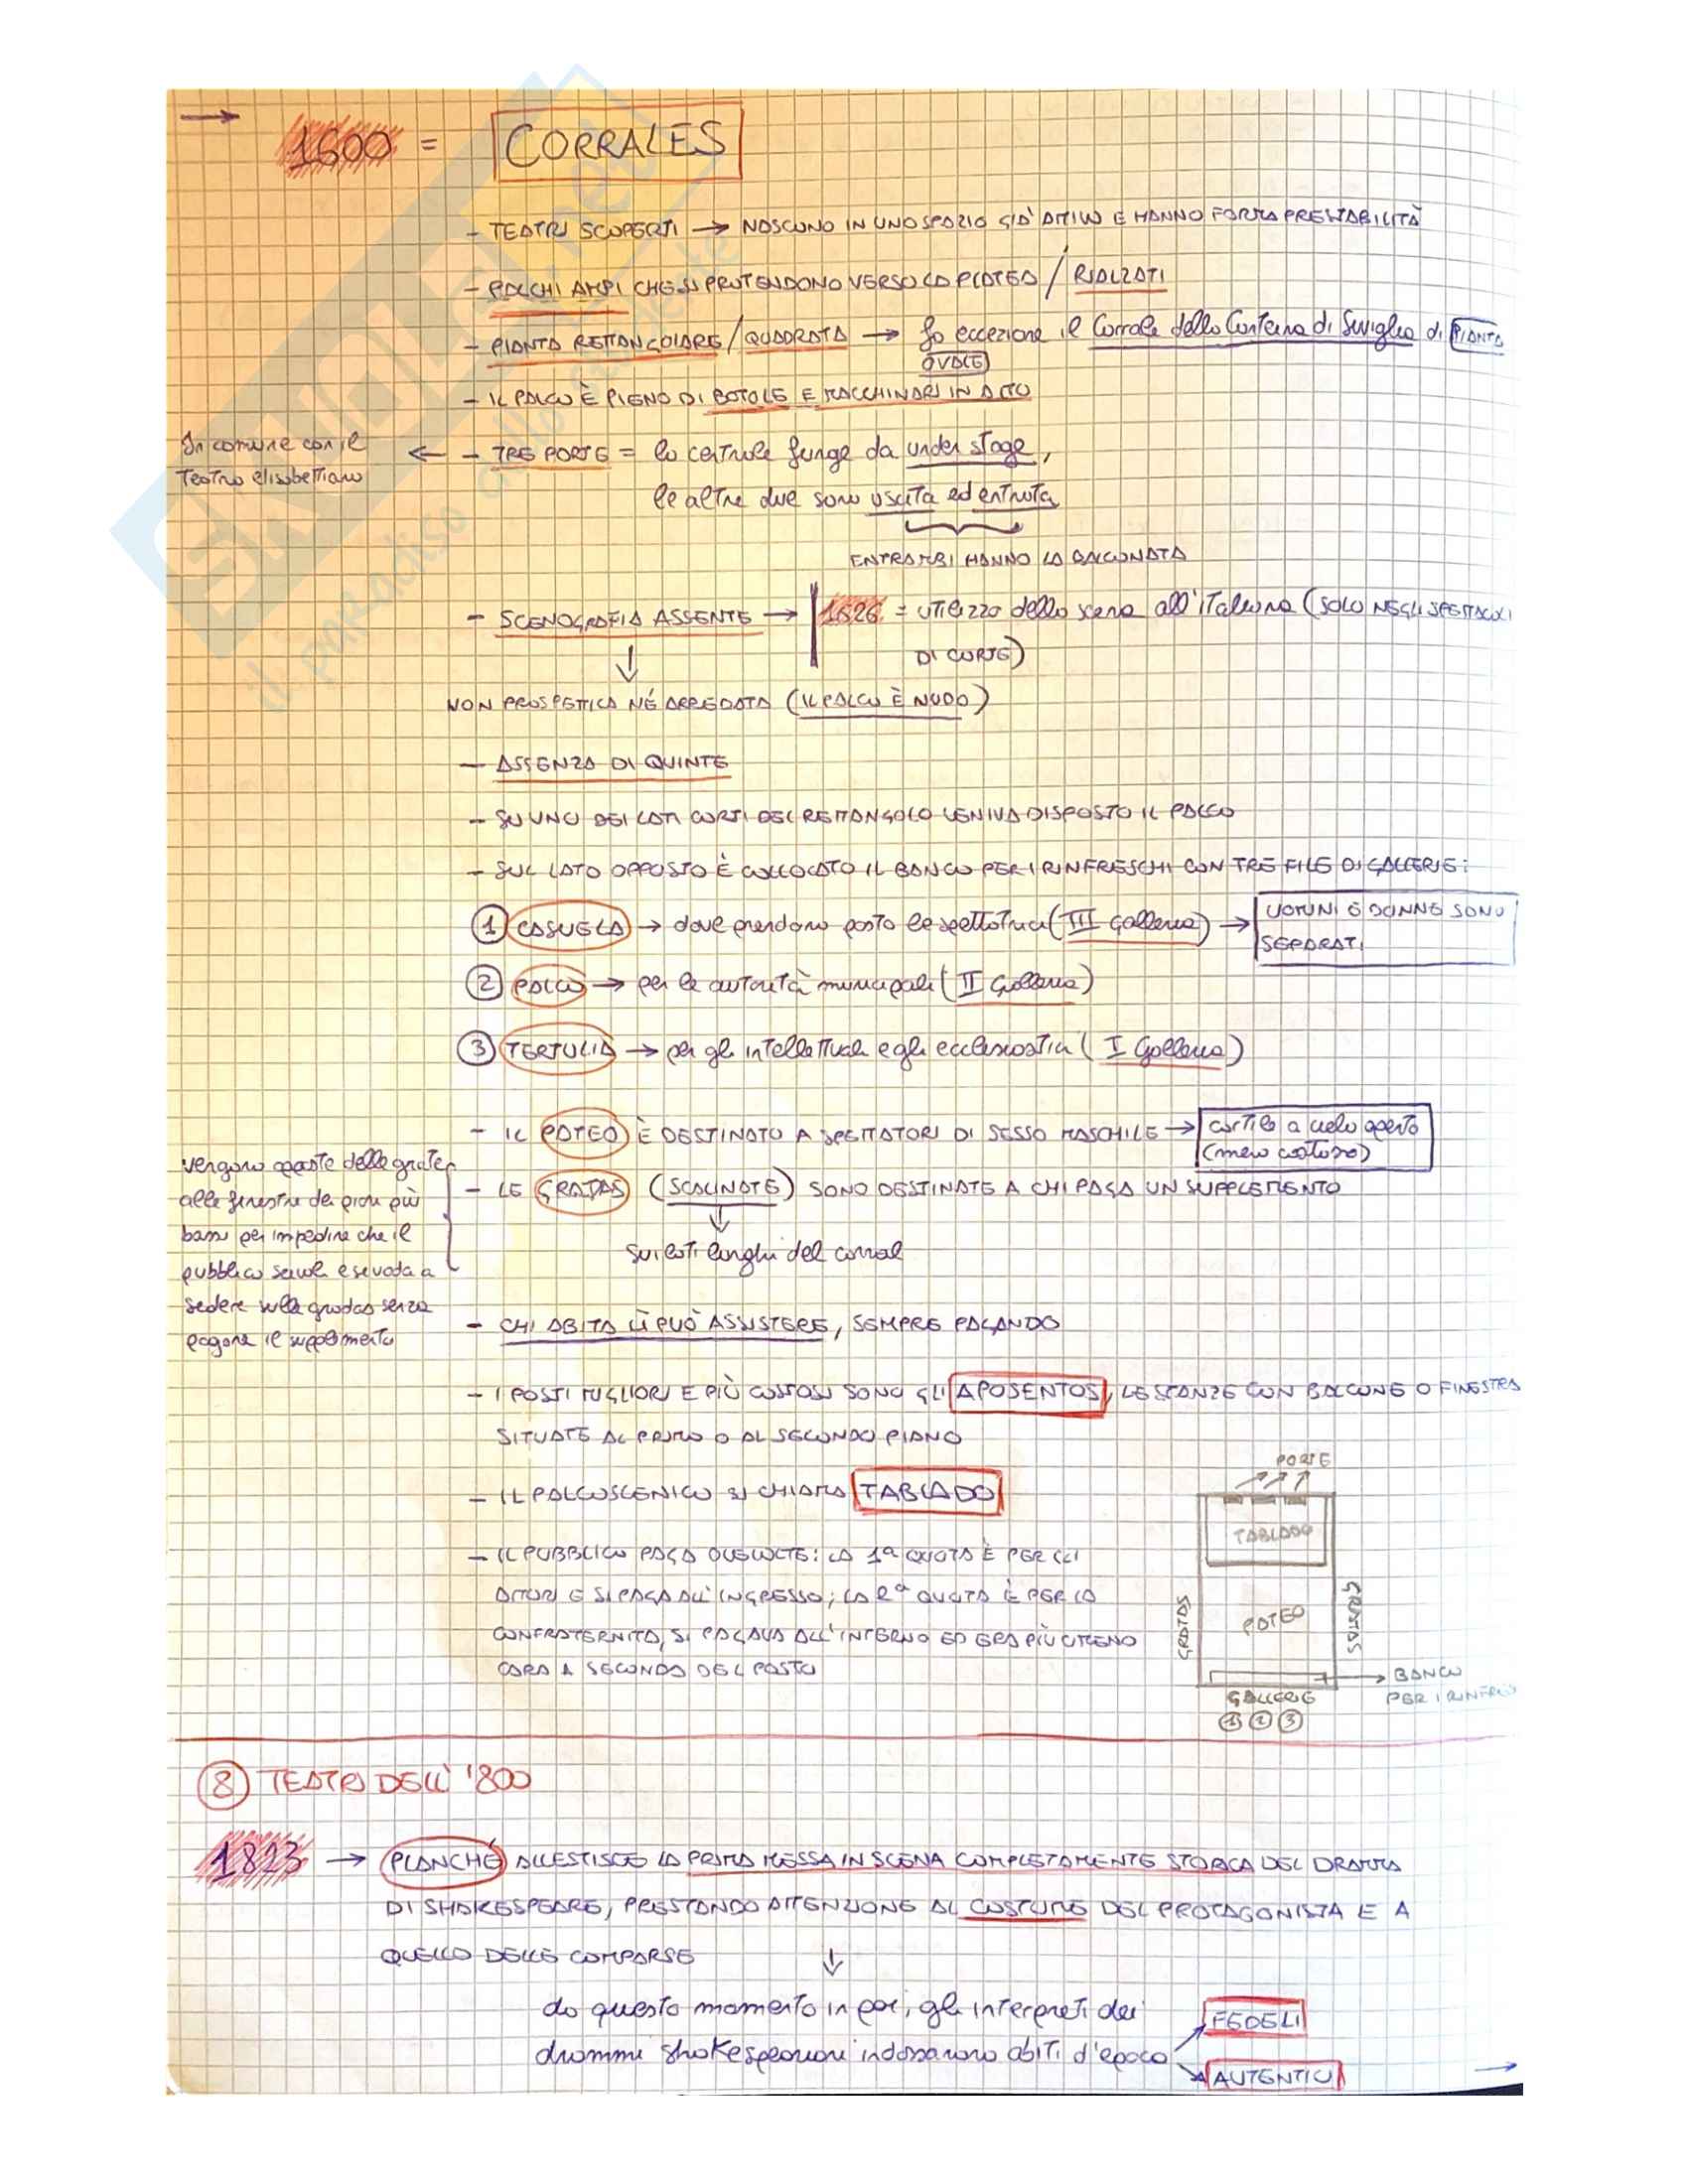 → 1600 = CORRALES
- TEATRI SCOPERTI → NASCONO IN UNO SPAZIO GIÀ ATTIVO E HANNO FORMA PRESTABILITÀ
- PALCHI AMPI CHE SI PROTENDONO VERSO LA PLATEA / RIALZATI
- PIANTA RETTANGOLARE/QUADRATA → fa eccezione il Corrale della Conteria di Siviglia di PIANTA
OVALE
- IL PALCO È PIENO DI BOTOLE E MACCHINARI IN ALTO
In comune con il
Teatro elisabettiano
← - TRE PORTE = la centrale funge da under stage,
le altre due sono uscita ed entrata
ENTRAMBI HANNO LA BALCONATA
- SCENOGRAFIA ASSENTE → 1626 = utilizzo della scena all'italiana (SOLO NEGLI SPETTACOLI
DI CORTE)
↓
NON PROSPETTICA NÉ ARREDATA (IL PALCO È NUDO)
- ASSENZA DI QUINTE
- SU UNO DEI LATI CORTI DEL RETTANGOLO VENIVA DISPOSTO IL PALCO
- SUL LATO OPPOSTO È COLLOCATO IL BANCO PER I RINFRESCHI CON TRE FILE DI GALLERIE:
① CASUELA → dove prendono posto le spettatrici (III Galleria) → UOMINI E DONNE SONO
SEPARATI
② PALCO → per le autorità municipali (II Galleria)
③ TERTULIA → per gli intellettuali e gli ecclesiastici (I Galleria)
- IL PATEO È DESTINATO A SPETTATORI DI SESSO MASCHILE → cortile a cielo aperto
(meno costoso)
- LE GRADAS (SCALINATE) SONO DESTINATE A CHI PAGA UN SUPPLEMENTO
↓
sui lati lunghi del corral
vengono apposte delle grate
alle finestre dei piani più
bassi per impedire che il
pubblico scivoli e si vada a
sedere sulle gradas senza
pagare il supplemento
- CHI ABITA LÌ PUÒ ASSISTERE, SEMPRE PAGANDO
- I POSTI MIGLIORI E PIÙ COSTOSI SONO GLI APOSENTOS, LE STANZE CON BALCONE O FINESTRA
SITUATE AL PRIMO O AL SECONDO PIANO
- IL PALCOSCENICO SI CHIAMA TABLADO
- IL PUBBLICO PAGA DUE VOLTE: LA 1ª QUOTA È PER GLI
ATTORI E SI PAGA ALL'INGRESSO; LA 2ª QUOTA È PER LA
CONFRATERNITA, SI PAGAVA ALL'INTERNO ED ERA PIÙ O MENO
CARA A SECONDA DEL POSTO
PORTE
TABLADO
GRADAS
PATEO
GRADAS
→ BANCO
PER I RINFRES
GALLERIE
① ② ③
⑧ TEATRI DELL'800
1823 → PLANCHÉ ALLESTISCE LA PRIMA MESSA IN SCENA COMPLETAMENTE STORICA DEL DRAMMA
DI SHAKESPEARE, PRESTANDO ATTENZIONE AL COSTUME DEL PROTAGONISTA E A
QUELLO DELLE COMPARSE
↓
da questo momento in poi, gli interpreti dei
drammi shakespeariani indossarono abiti d'epoca
FEDELI
AUTENTICI
→
SKUOLA.net
il paradiso dello studente